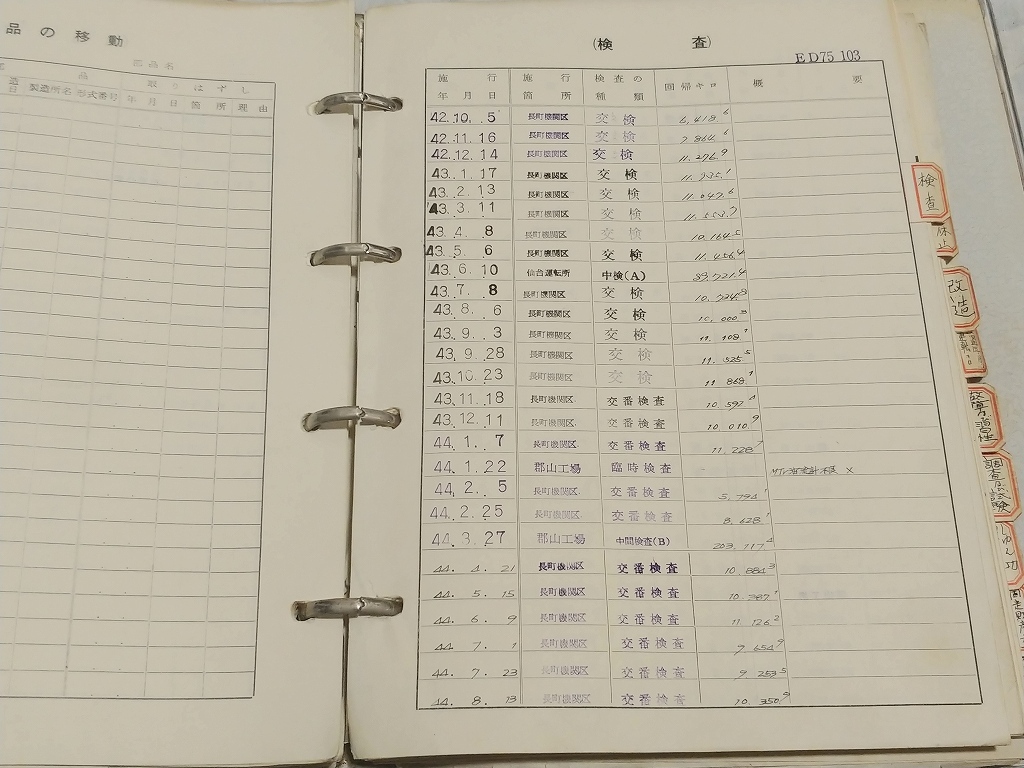 品の移動
部品名
品
取りはずし
製造所名
形式番号
年月日
箇所
理由
(検査)
ED75 103
施行年月日 施行箇所 検査の種類 回帰キロ 概要
42.10.5 長町機関区 交検 6,418.6
42.11.16 長町機関区 交検 7,864.6
42.12.14 長町機関区 交検 11,276.9
43.1.17 長町機関区 交検
43.2.13 長町機関区 交検 11,047.6
43.3.11 長町機関区 交検
43.4.8 長町機関区 交検 10,164.5
43.5.6 長町機関区 交検 11,456.4
43.6.10 仙台運転所 中検(A) 89,721.4
43.7.8 長町機関区 交検
43.8.6 長町機関区 交検
43.9.3 長町機関区 交検 11,108.1
43.9.28 長町機関区 交検 11,525.5
43.10.23 長町機関区 交検 11,868.1
43.11.18 長町機関区 交番検査 10,592.4
43.12.11 長町機関区 交番検査 10,010.9
44.1.7 長町機関区 交番検査 11,228.7
44.1.22 郡山工場 臨時検査
44.2.5 長町機関区 交番検査 5,794.1
44.2.25 長町機関区 交番検査 8,628.1
44.3.27 郡山工場 中間検査(B) 203,717.4
44.4.21 長町機関区 交番検査 10,884.3
44.5.15 長町機関区 交番検査 10,387.1
44.6.9 長町機関区 交番検査 11,126.2
44.7.1 長町機関区 交番検査 9,654.9
44.7.23 長町機関区 交番検査 9,253.5
44.8.13 長町機関区 交番検査 10,350.9
検査
休止
改造
調査及試験
しゅん功